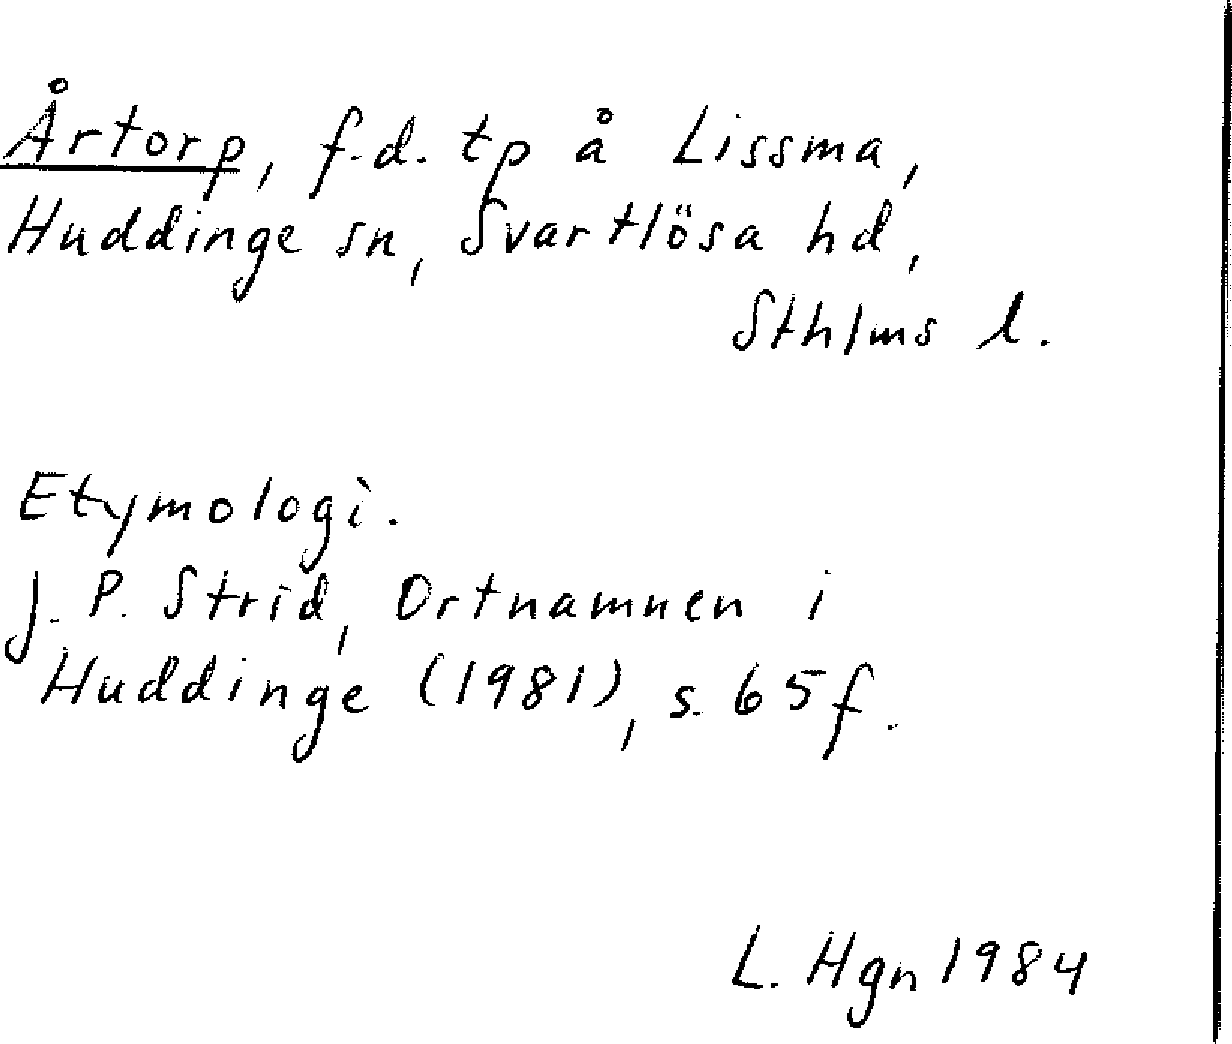 Årtorp, f.d. tp å Lissma,
Huddinge sn, Svartlösa hd,
Sthlms l.
Etymologi.
J. P. Strid, Ortnamnen i
Huddinge (1981), s. 65 f.
L. Hgn 1984